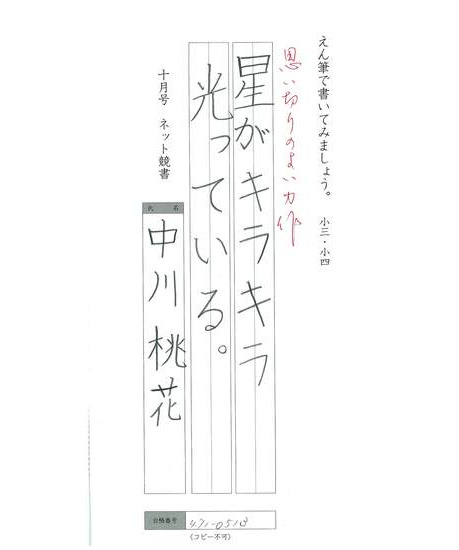 えん筆で書いてみましょう。 小三・小四
思い切りのよい力作
星がキラキラ
光っている。
十月号 ネット競書
氏名
中川桃花
合格番号 471-0513
(コピー不可)